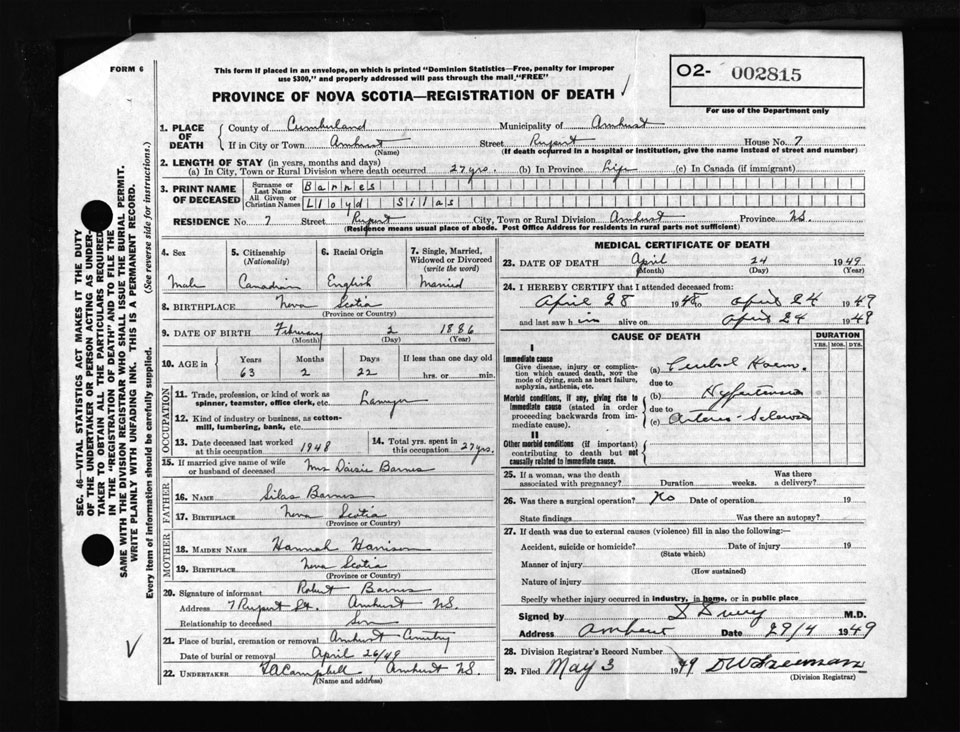 FORM 6
This form if placed in an envelope, on which is printed "Dominion Statistics—Free, penalty for improper
use $300," and properly addressed will pass through the mail "FREE"
O2- 002815
For use of the Department only
PROVINCE OF NOVA SCOTIA—REGISTRATION OF DEATH
1. PLACE OF DEATH
County of Cumberland Municipality of Amherst
If in City or Town Amherst Street Rupert House No. 7
(Name) (If death occurred in a hospital or institution, give the name instead of street and number)
2. LENGTH OF STAY (in years, months and days)
(a) In City, Town or Rural Division where death occurred 27 yrs. (b) In Province Life (c) In Canada (if immigrant)
3. PRINT NAME OF DECEASED
Surname or Last Name Barnes
All Given or Christian Names Lloyd Silas
RESIDENCE No. 7 Street Rupert City, Town or Rural Division Amherst Province N.S.
(Residence means usual place of abode. Post Office Address for residents in rural parts not sufficient)
4. Sex Male
5. Citizenship (Nationality) Canadian
6. Racial Origin English
7. Single, Married, Widowed or Divorced (write the word) Married
8. BIRTHPLACE Nova Scotia
(Province or Country)
9. DATE OF BIRTH February 2 1886
(Month) (Day) (Year)
10. AGE in Years Months Days If less than one day old
63 2 22 hrs. or min.
OCCUPATION
11. Trade, profession, or kind of work as spinner, teamster, office clerk, etc. Lawyer
12. Kind of industry or business, as cotton-mill, lumbering, bank, etc.
13. Date deceased last worked at this occupation 1948
14. Total yrs. spent in this occupation 27 yrs.
15. If married give name of wife or husband of deceased Mrs Daisie Barnes
FATHER
16. NAME Silas Barnes
17. BIRTHPLACE Nova Scotia
(Province or Country)
MOTHER
18. MAIDEN NAME Hannah Harrison
19. BIRTHPLACE Nova Scotia
(Province or Country)
20. Signature of informant Robert Barnes
Address 7 Rupert St. Amherst N.S.
Relationship to deceased Son
21. Place of burial, cremation or removal Amherst
Date of burial or removal April 26/49
22. UNDERTAKER Campbell Amherst N.S.
(Name and address)
MEDICAL CERTIFICATE OF DEATH
23. DATE OF DEATH April 24 1949
(Month) (Day) (Year)
24. I HEREBY CERTIFY that I attended deceased from:
April 28 1948 to April 24 1949
and last saw him alive on April 24 1949
CAUSE OF DEATH
DURATION
YRS. MOS. DYS.
I
Immediate cause
Give disease, injury or complication which caused death, NOT the mode of dying, such as heart failure, asphyxia, asthenia, etc.
(a) Cerebral Haem.
due to
Morbid conditions, if any, giving rise to immediate cause (stated in order proceeding backwards from immediate cause).
(b) Hypertension
due to
(c) Arterio-Sclerosis
II
Other morbid conditions (if important) contributing to death but not causally related to immediate cause.
25. If a woman, was the death associated with pregnancy? Duration weeks. Was there a delivery?
26. Was there a surgical operation? No Date of operation 19
State findings Was there an autopsy?
27. If death was due to external causes (violence) fill in also the following:—
Accident, suicide or homicide? Date of injury 19
(State which)
Manner of injury
(How sustained)
Nature of injury
Specify whether injury occurred in industry, in home, or in public place
Signed by M.D.
Address Amherst Date 29/4 1949
28. Division Registrar's Record Number
29. Filed May 3 1949 D W Freeman
(Division Registrar)
SEC. 46—VITAL STATISTICS ACT MAKES IT THE DUTY
OF THE UNDERTAKER OR PERSON ACTING AS UNDER-
TAKER TO OBTAIN ALL THE PARTICULARS REQUIRED
IN THE "REGISTRATION OF DEATH" AND TO FILE THE
SAME WITH THE DIVISION REGISTRAR WHO SHALL ISSUE THE BURIAL PERMIT.
WRITE PLAINLY WITH UNFADING INK. THIS IS A PERMANENT RECORD.
Every item of information should be carefully supplied. (See reverse side for instructions.)